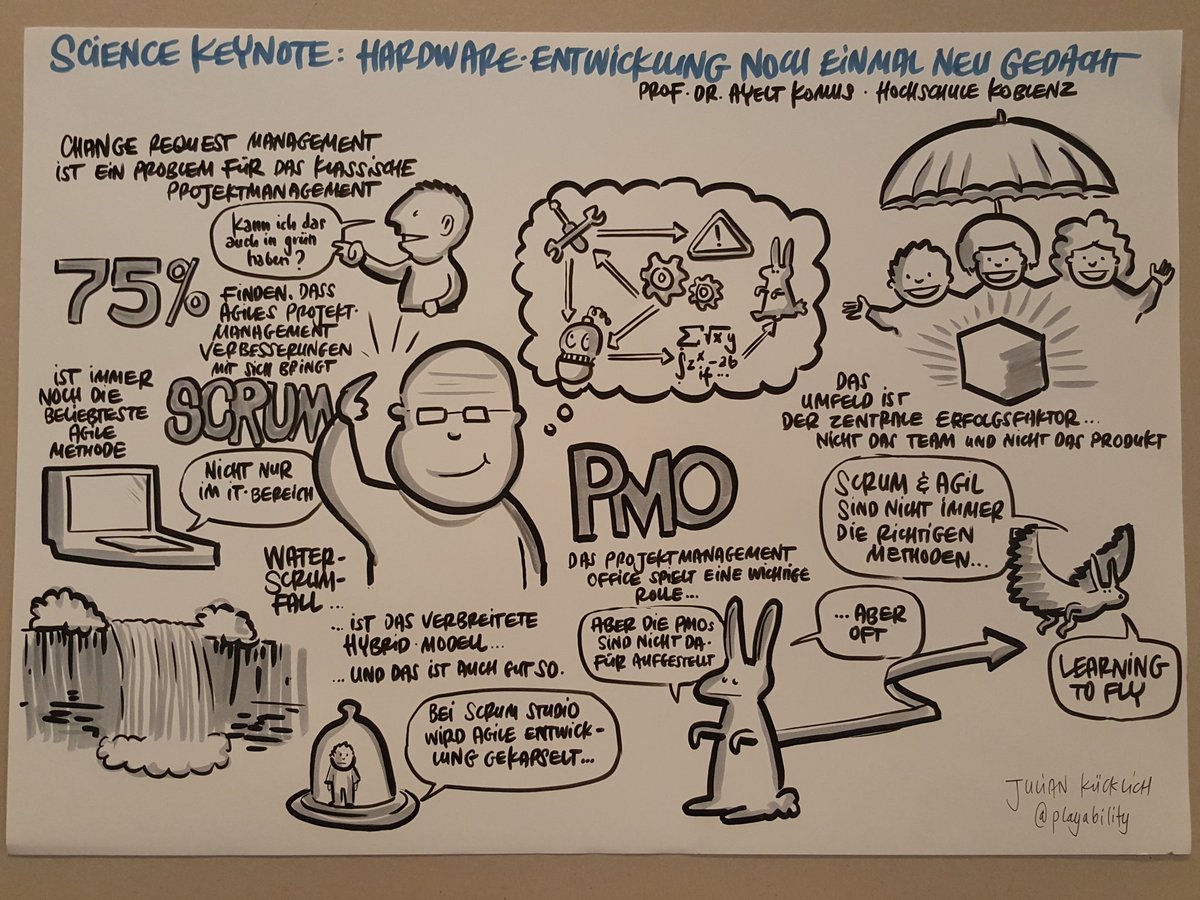 SCIENCE KEYNOTE: HARDWARE-ENTWICKLUNG NOCH EINMAL NEU GEDACHT
PROF. DR. AYELT KOMUS · HOCHSCHULE KOBLENZ
CHANGE REQUEST MANAGEMENT
IST EIN PROBLEM FÜR DAS KLASSISCHE
PROJEKTMANAGEMENT
Kann ich das
auch in grün
haben?
75%
FINDEN, DASS
AGILES PROJEKT-
MANAGEMENT
VERBESSERUNGEN
MIT SICH BRINGT
IST IMMER
NOCH DIE
BELIEBTESTE
AGILE
METHODE
SCRUM
NICHT NUR
IM IT-BEREICH
WATER-
SCRUM-
FALL...
...IST DAS VERBREITETE
HYBRID-MODELL...
...UND DAS IST AUCH GUT SO.
BEI SCRUM STUDIO
WIRD AGILE ENTWICK-
LUNG GEKAPSELT...
!
∑ √x y
∫ z^x - ab
if...
PMO
DAS PROJEKTMANAGEMENT
OFFICE SPIELT EINE WICHTIGE
ROLLE...
ABER DIE PMOs
SIND NICHT DA-
FÜR AUFGESTELLT
DAS
UMFELD IST
DER ZENTRALE ERFOLGSFAKTOR...
NICHT DAS TEAM UND NICHT DAS PRODUKT
SCRUM & AGIL
SIND NICHT IMMER
DIE RICHTIGEN
METHODEN...
...ABER
OFT
LEARNING
TO FLY
JULIAN KÜCKLICH
@playability